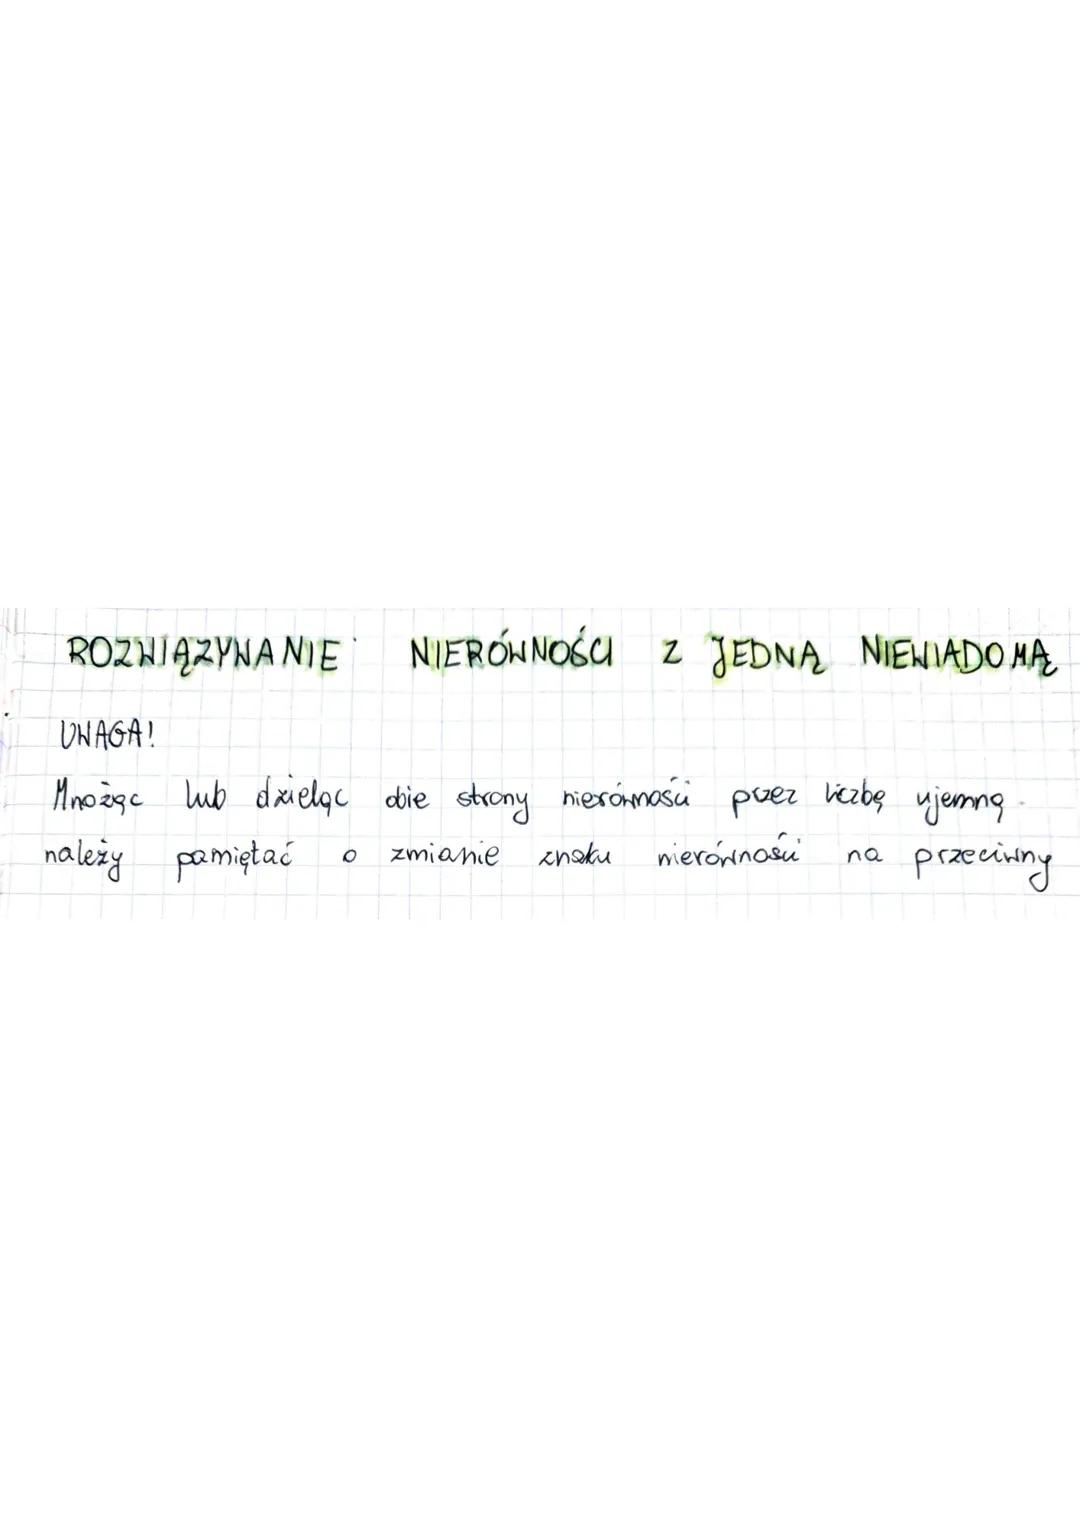 ROZWIĄZYWANIE NIERÓWNOŚCI Z JEDNĄ NIEWIADOMĄ
UWAGA!
Mnożąc lub dzieląc obie strony nierówności przez liczbę ujemną
należy pamiętać o zmianie znaku nierówności na przeciwny